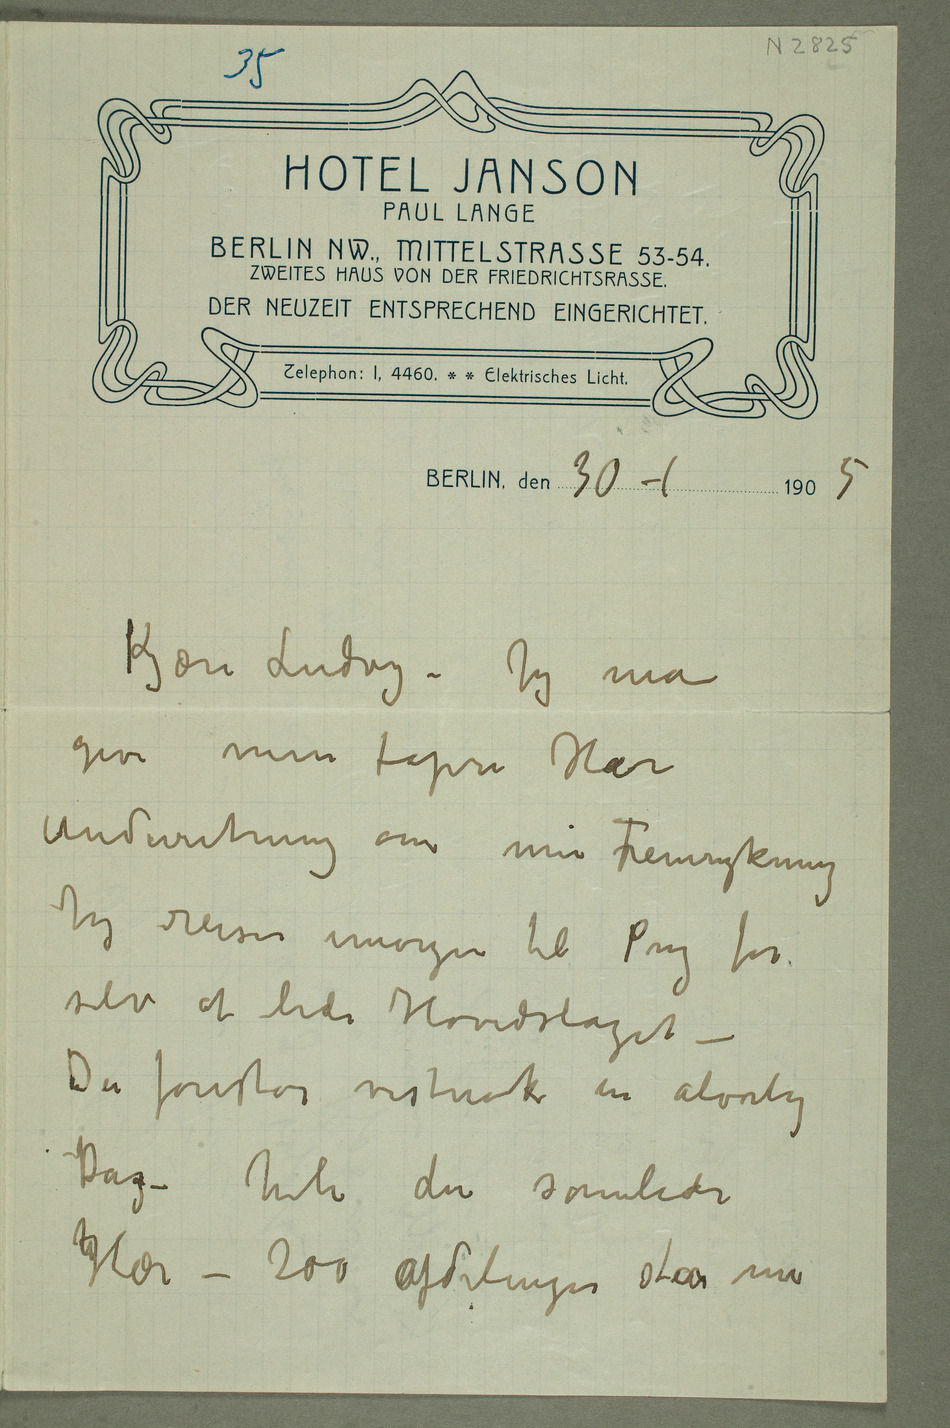 N 2825
35
HOTEL JANSON
PAUL LANGE
BERLIN NW., MITTELSTRASSE 53-54.
ZWEITES HAUS VON DER FRIEDRICHTSRASSE.
DER NEUZEIT ENTSPRECHEND EINGERICHTET.
Telephon: I, 4460. * * Elektrisches Licht.
BERLIN, den 30-1 1905
Kjære Ludvig - Jeg ma
give min tapre Hær
Underretning om min Fremrykning
Jeg reiser imorgen til Prag for
selv at lede Hovedslaget –
Du forestår vistnok en alvorlig
Dag – hele den samlede
Hær – 200 afdelinger star nu